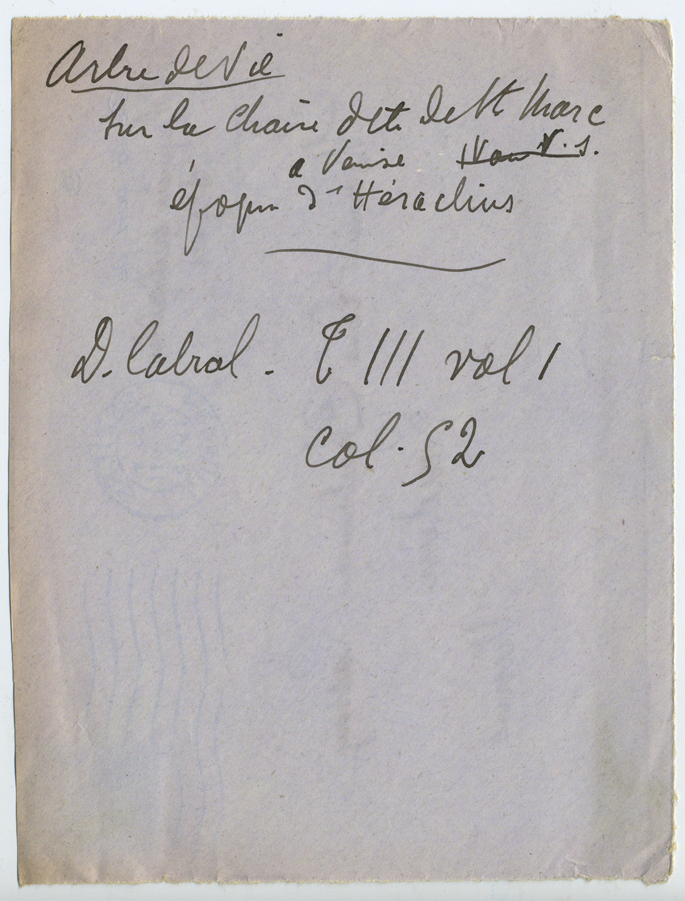 Arbre de Vie
sur la Chaire dite de St Marc
a Venise
époque d'Héraclius
D. Cabrol. T III vol 1
col. 52